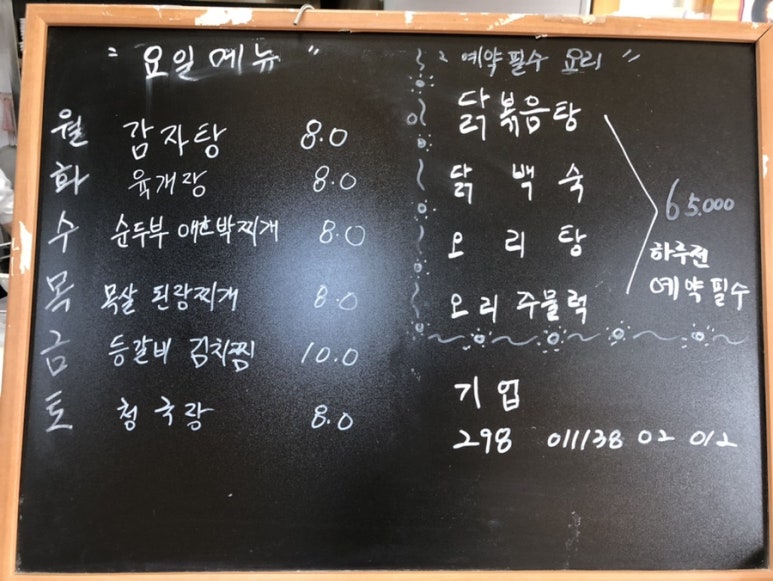 " 요일 메뉴 "
월 감자탕 8.0
화 육개장 8.0
수 순두부 애호박찌개 8.0
목 목살 된장찌개 8.0
금 등갈비 김치찜 10.0
토 청국장 8.0
" 예약필수 요리 "
닭볶음탕
닭 백숙
오리탕
오리 주물럭
65.000
하루전
예약필수
기업
298 011138 02 012